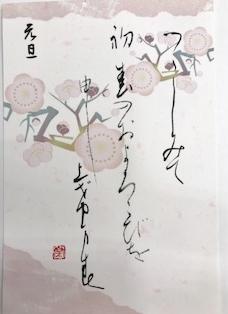 つつしみて
初春のおよろこびを
申し
上げます
元旦